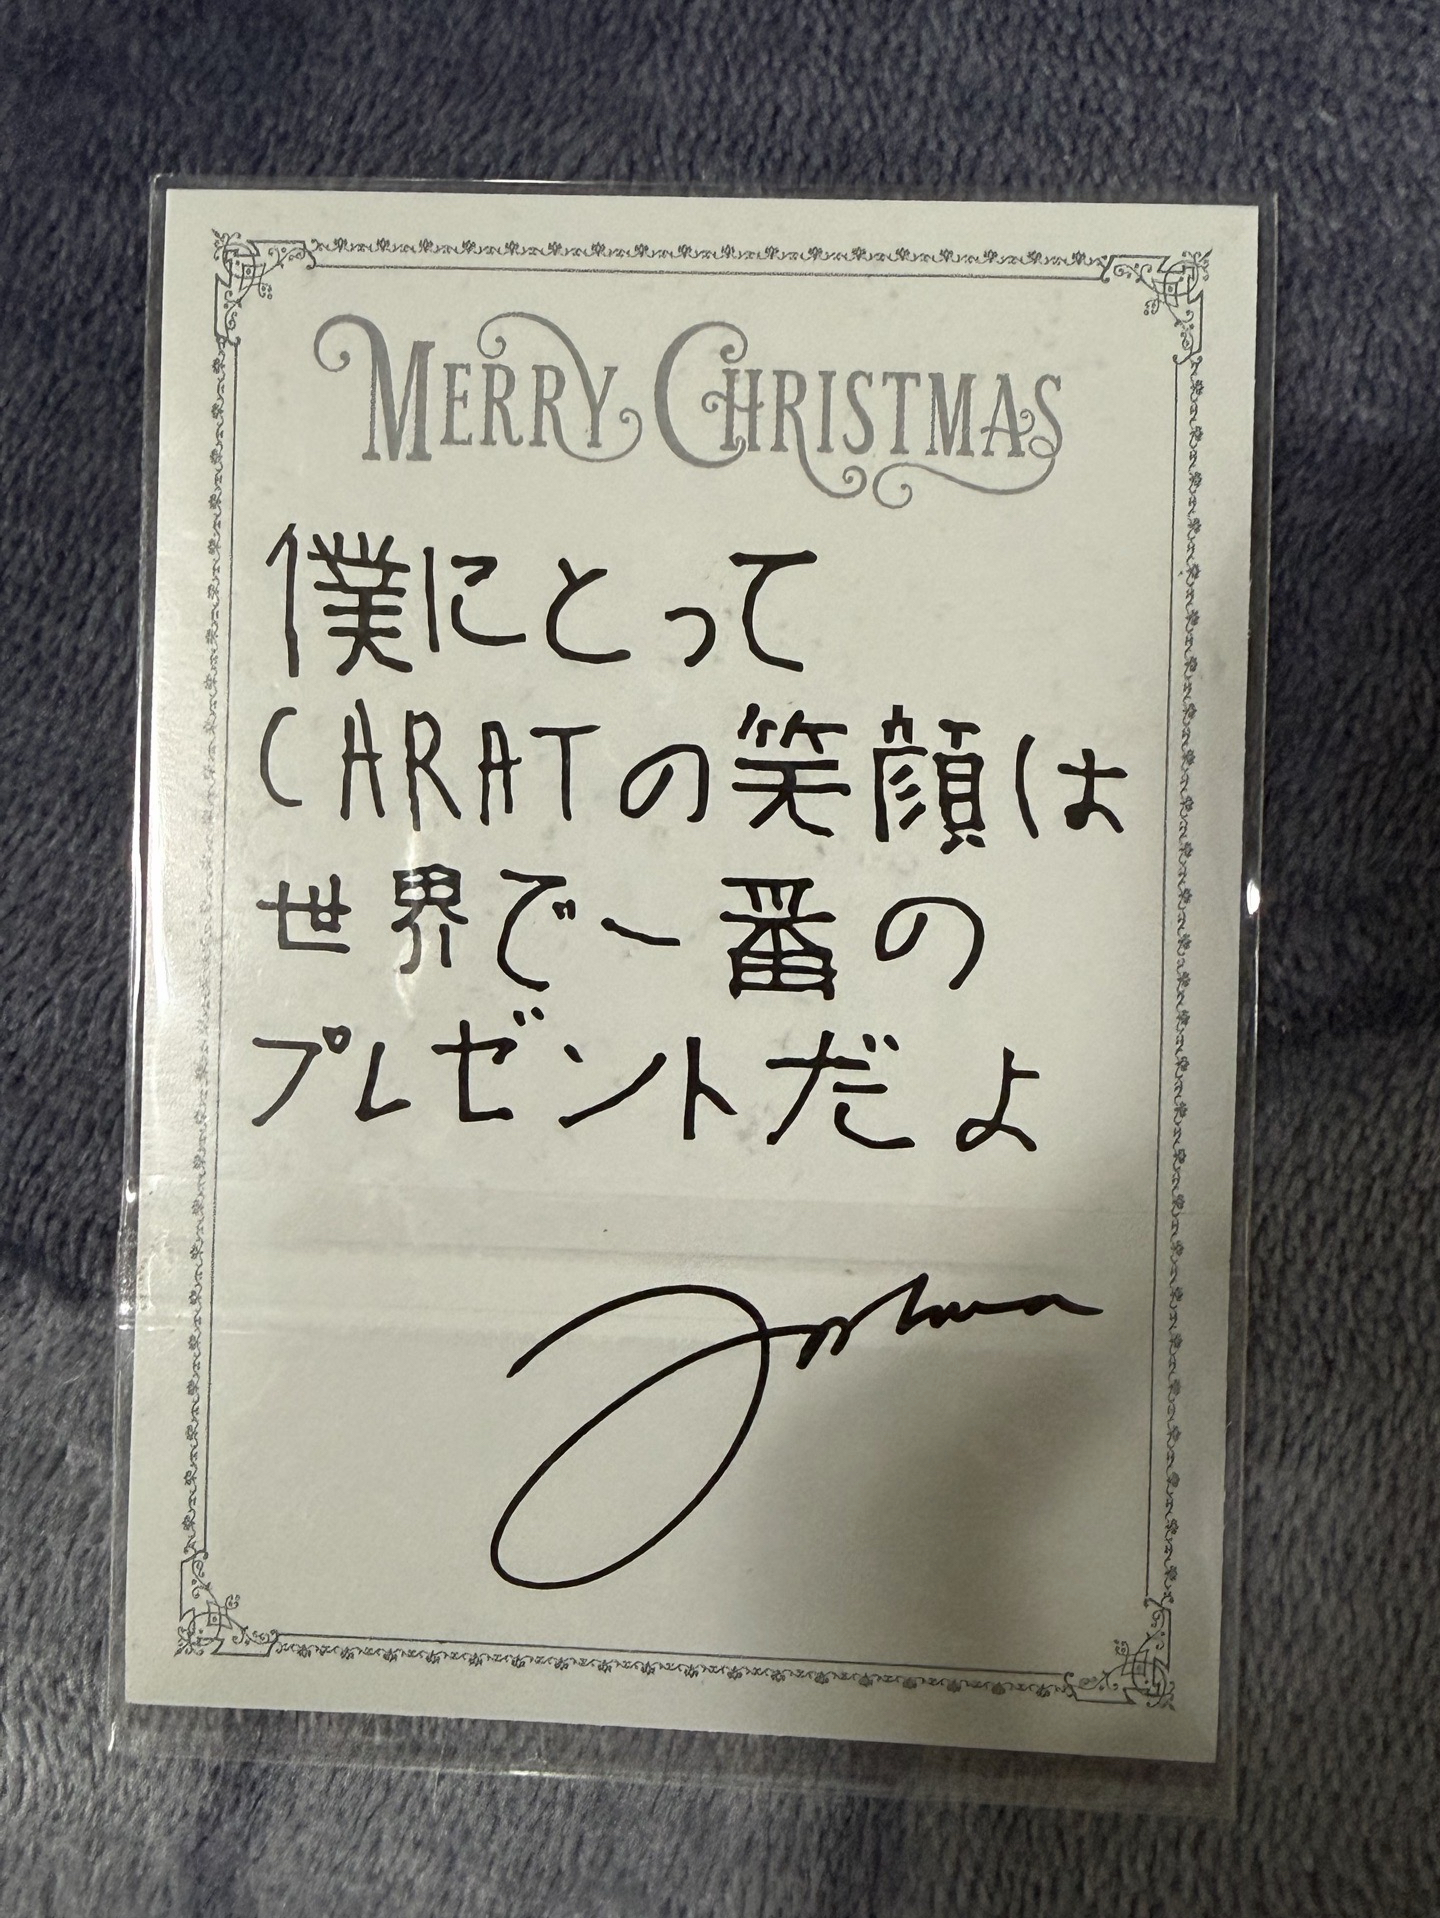 MERRY CHRISTMAS
僕にとって
CARATの笑顔は
世界で一番の
プレゼントだよ
Joshua